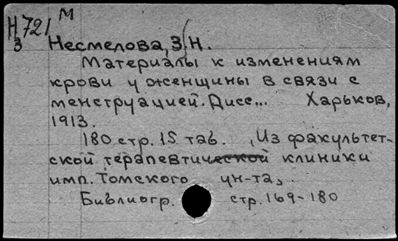 Н721 М
3
Несмелова, З. Н.
Материалы к изменениям
крови у женщины в связи с
менструацией. Дисс... Харьков,
1913.
180 стр. 15 таб. (Из факультет-
ской терапевтической клиники
имп. Томского ун-та).
Библиогр. стр. 169-180